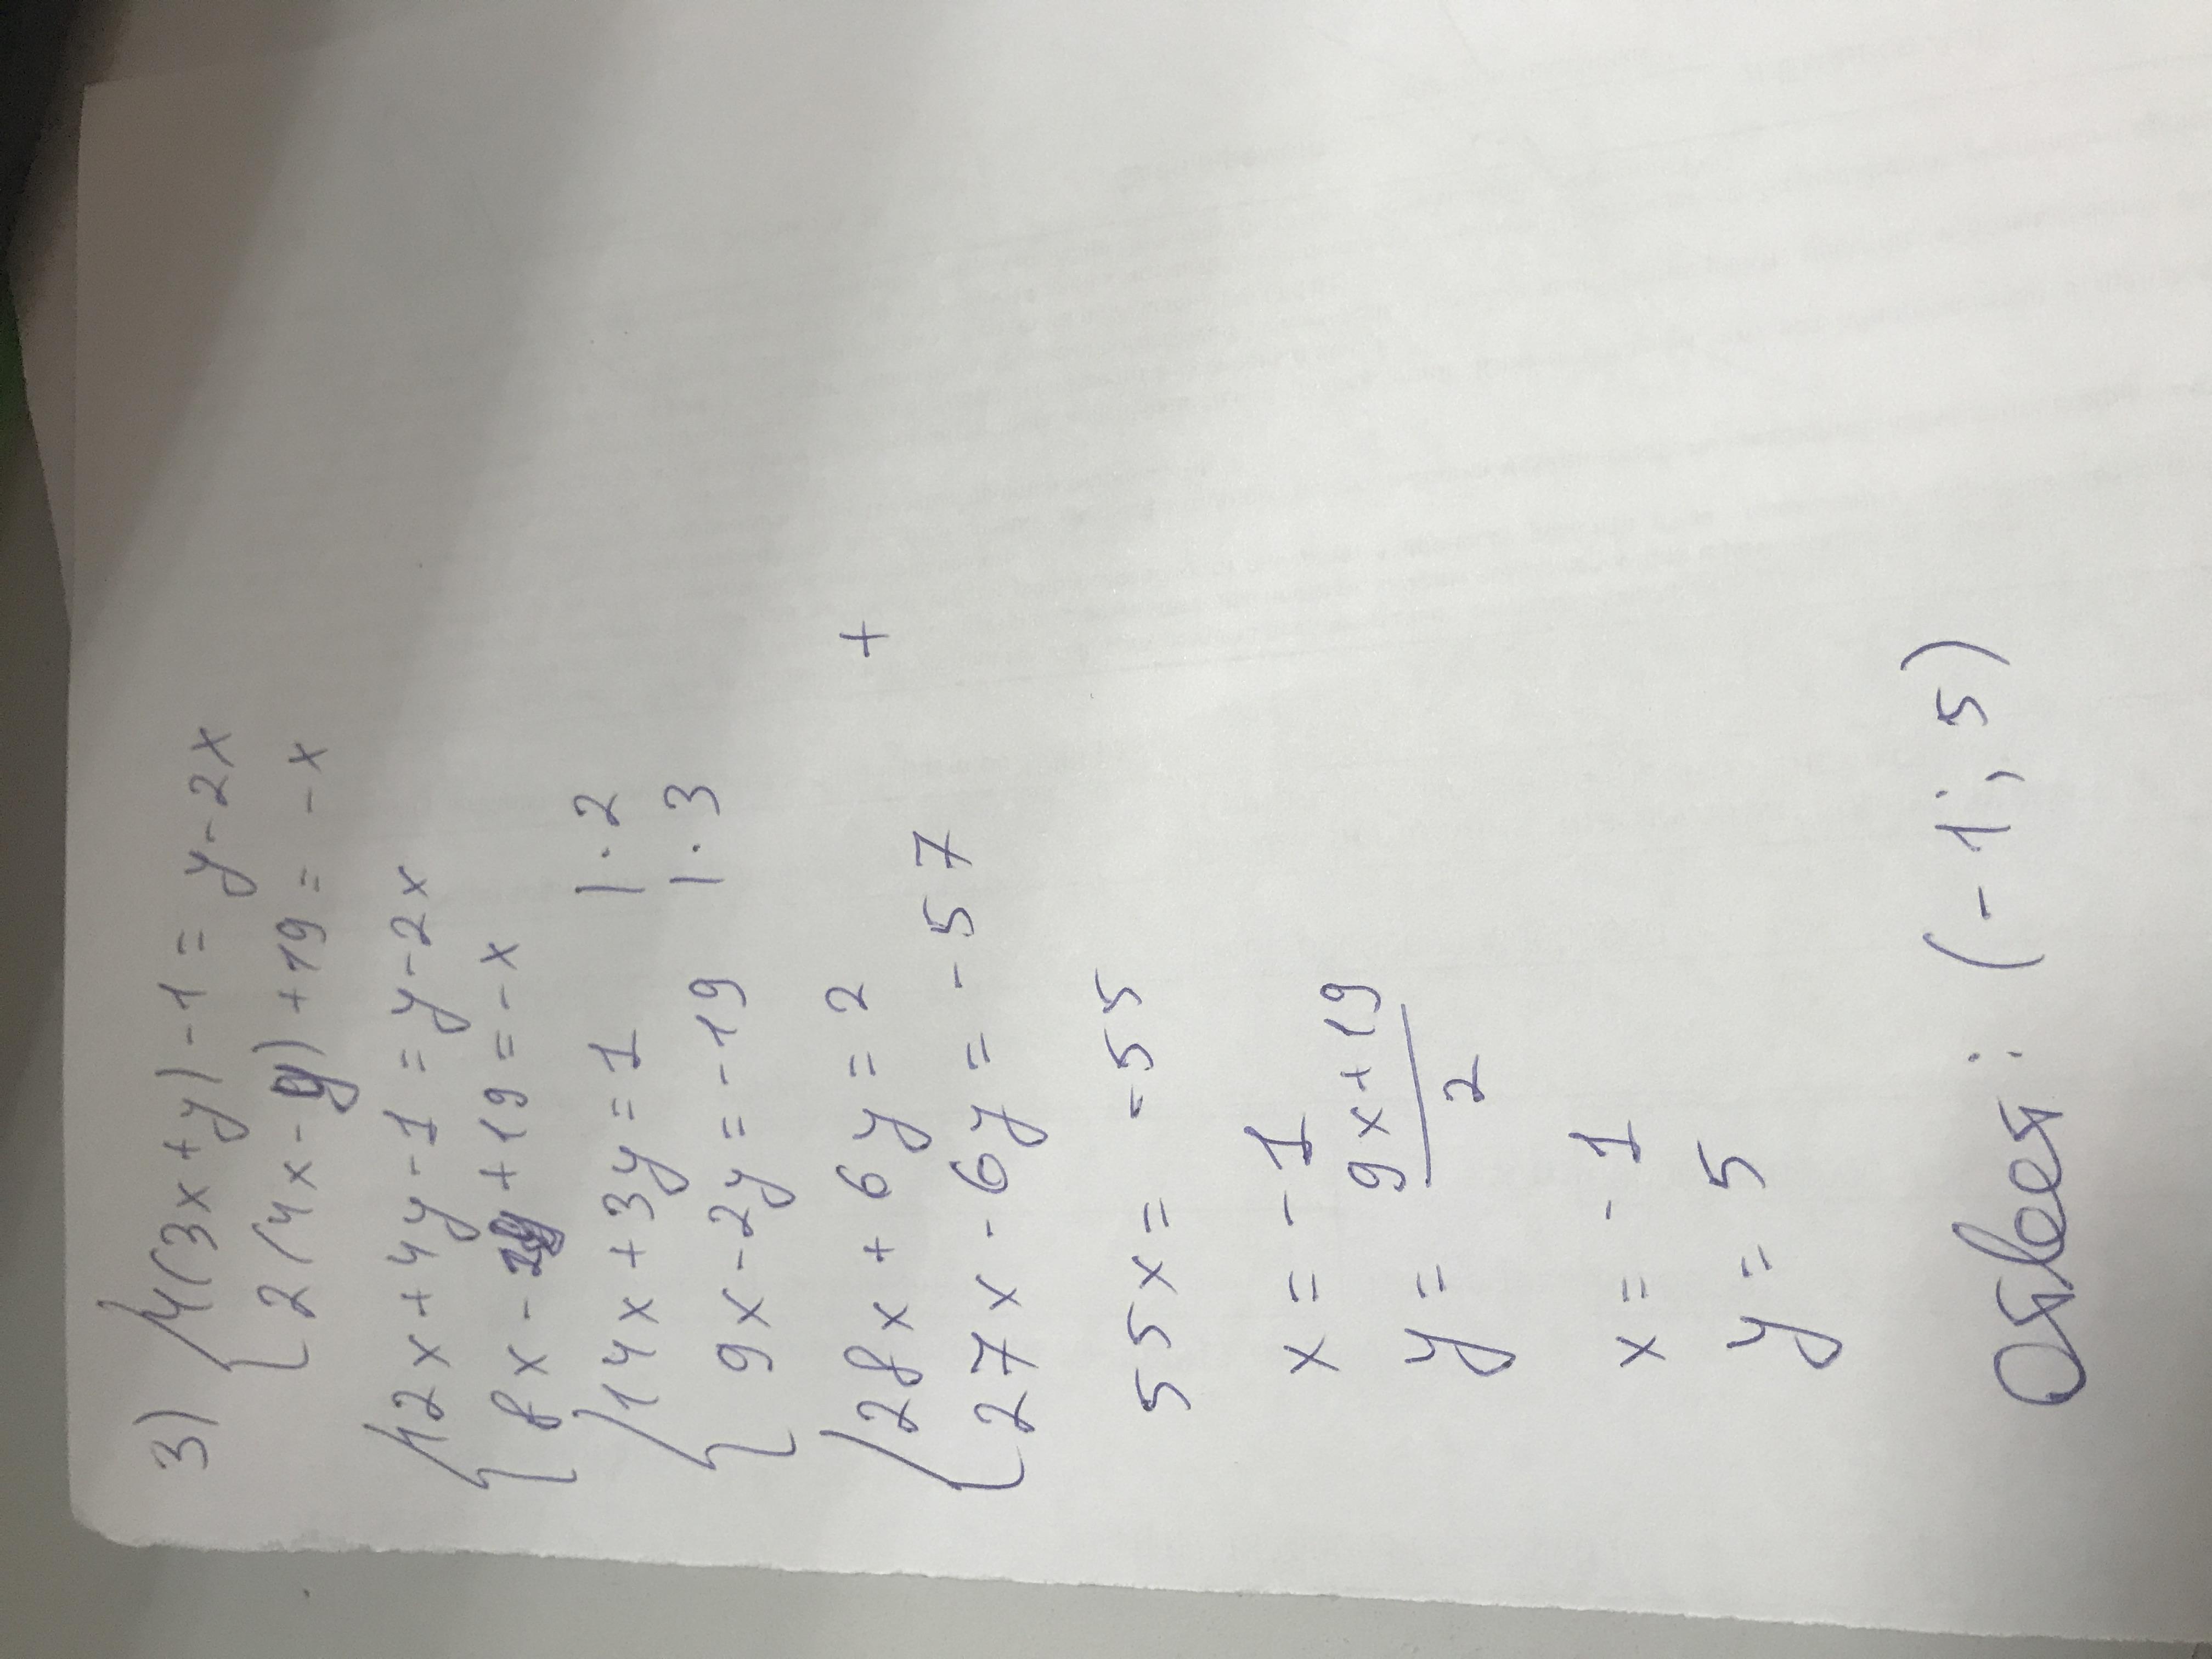 3) { 4(3x+y)-1=y-2x
2(4x-y)+19=-x
{ 12x+4y-1=y-2x
8x-2y+19=-x
{ 14x+3y=1 |·2
9x-2y=-19 |·3
{ 28x+6y=2 +
27x-6y=-57
55x=-55
x=-1
y=\frac{9x+19}{2}
x=-1
y=5
Ответ: (-1; 5)